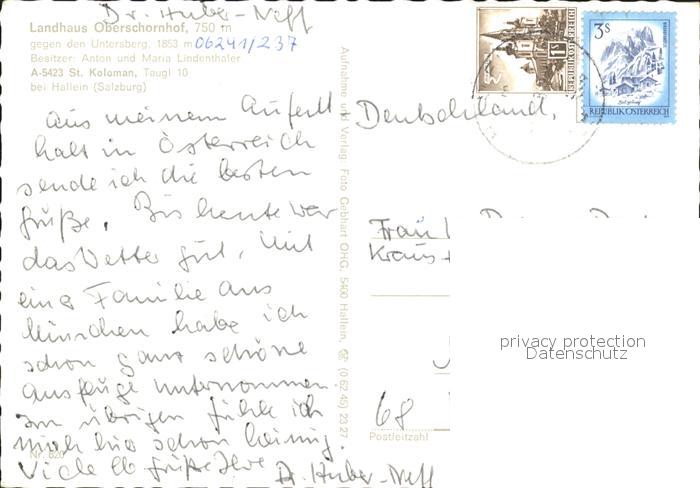 Dr. Huber-Neff
Landhaus Oberschornhof, 750 m
gegen den Untersberg, 1853 m 06241/237
Besitzer: Anton und Maria Lindenthaler
A-5423 St. Koloman, Taugl 10
bei Hallein (Salzburg)
aus meinem Aufent
halt in Österreich
sende ich die besten
Grüße. Bis heute war
das Wetter gut. Mit
einer Familie aus
München habe ich
schon ganz schöne
Ausflüge unternommen.
Im übrigen fühle ich
mich hier schon heimig.
Viele lb Grüße Ihre Dr. Huber-Neff
Nr. 820
Aufnahme und Verlag: Foto Gebhart OHG, 5400 Hallein, ☏ (0 62 45) 23 27
1S
REPUBLIK ÖSTERREICH
3S
REPUBLIK ÖSTERREICH
Deutschland,
Frau
Kraus
68
Postleitzahl
privacy protection
Datenschutz